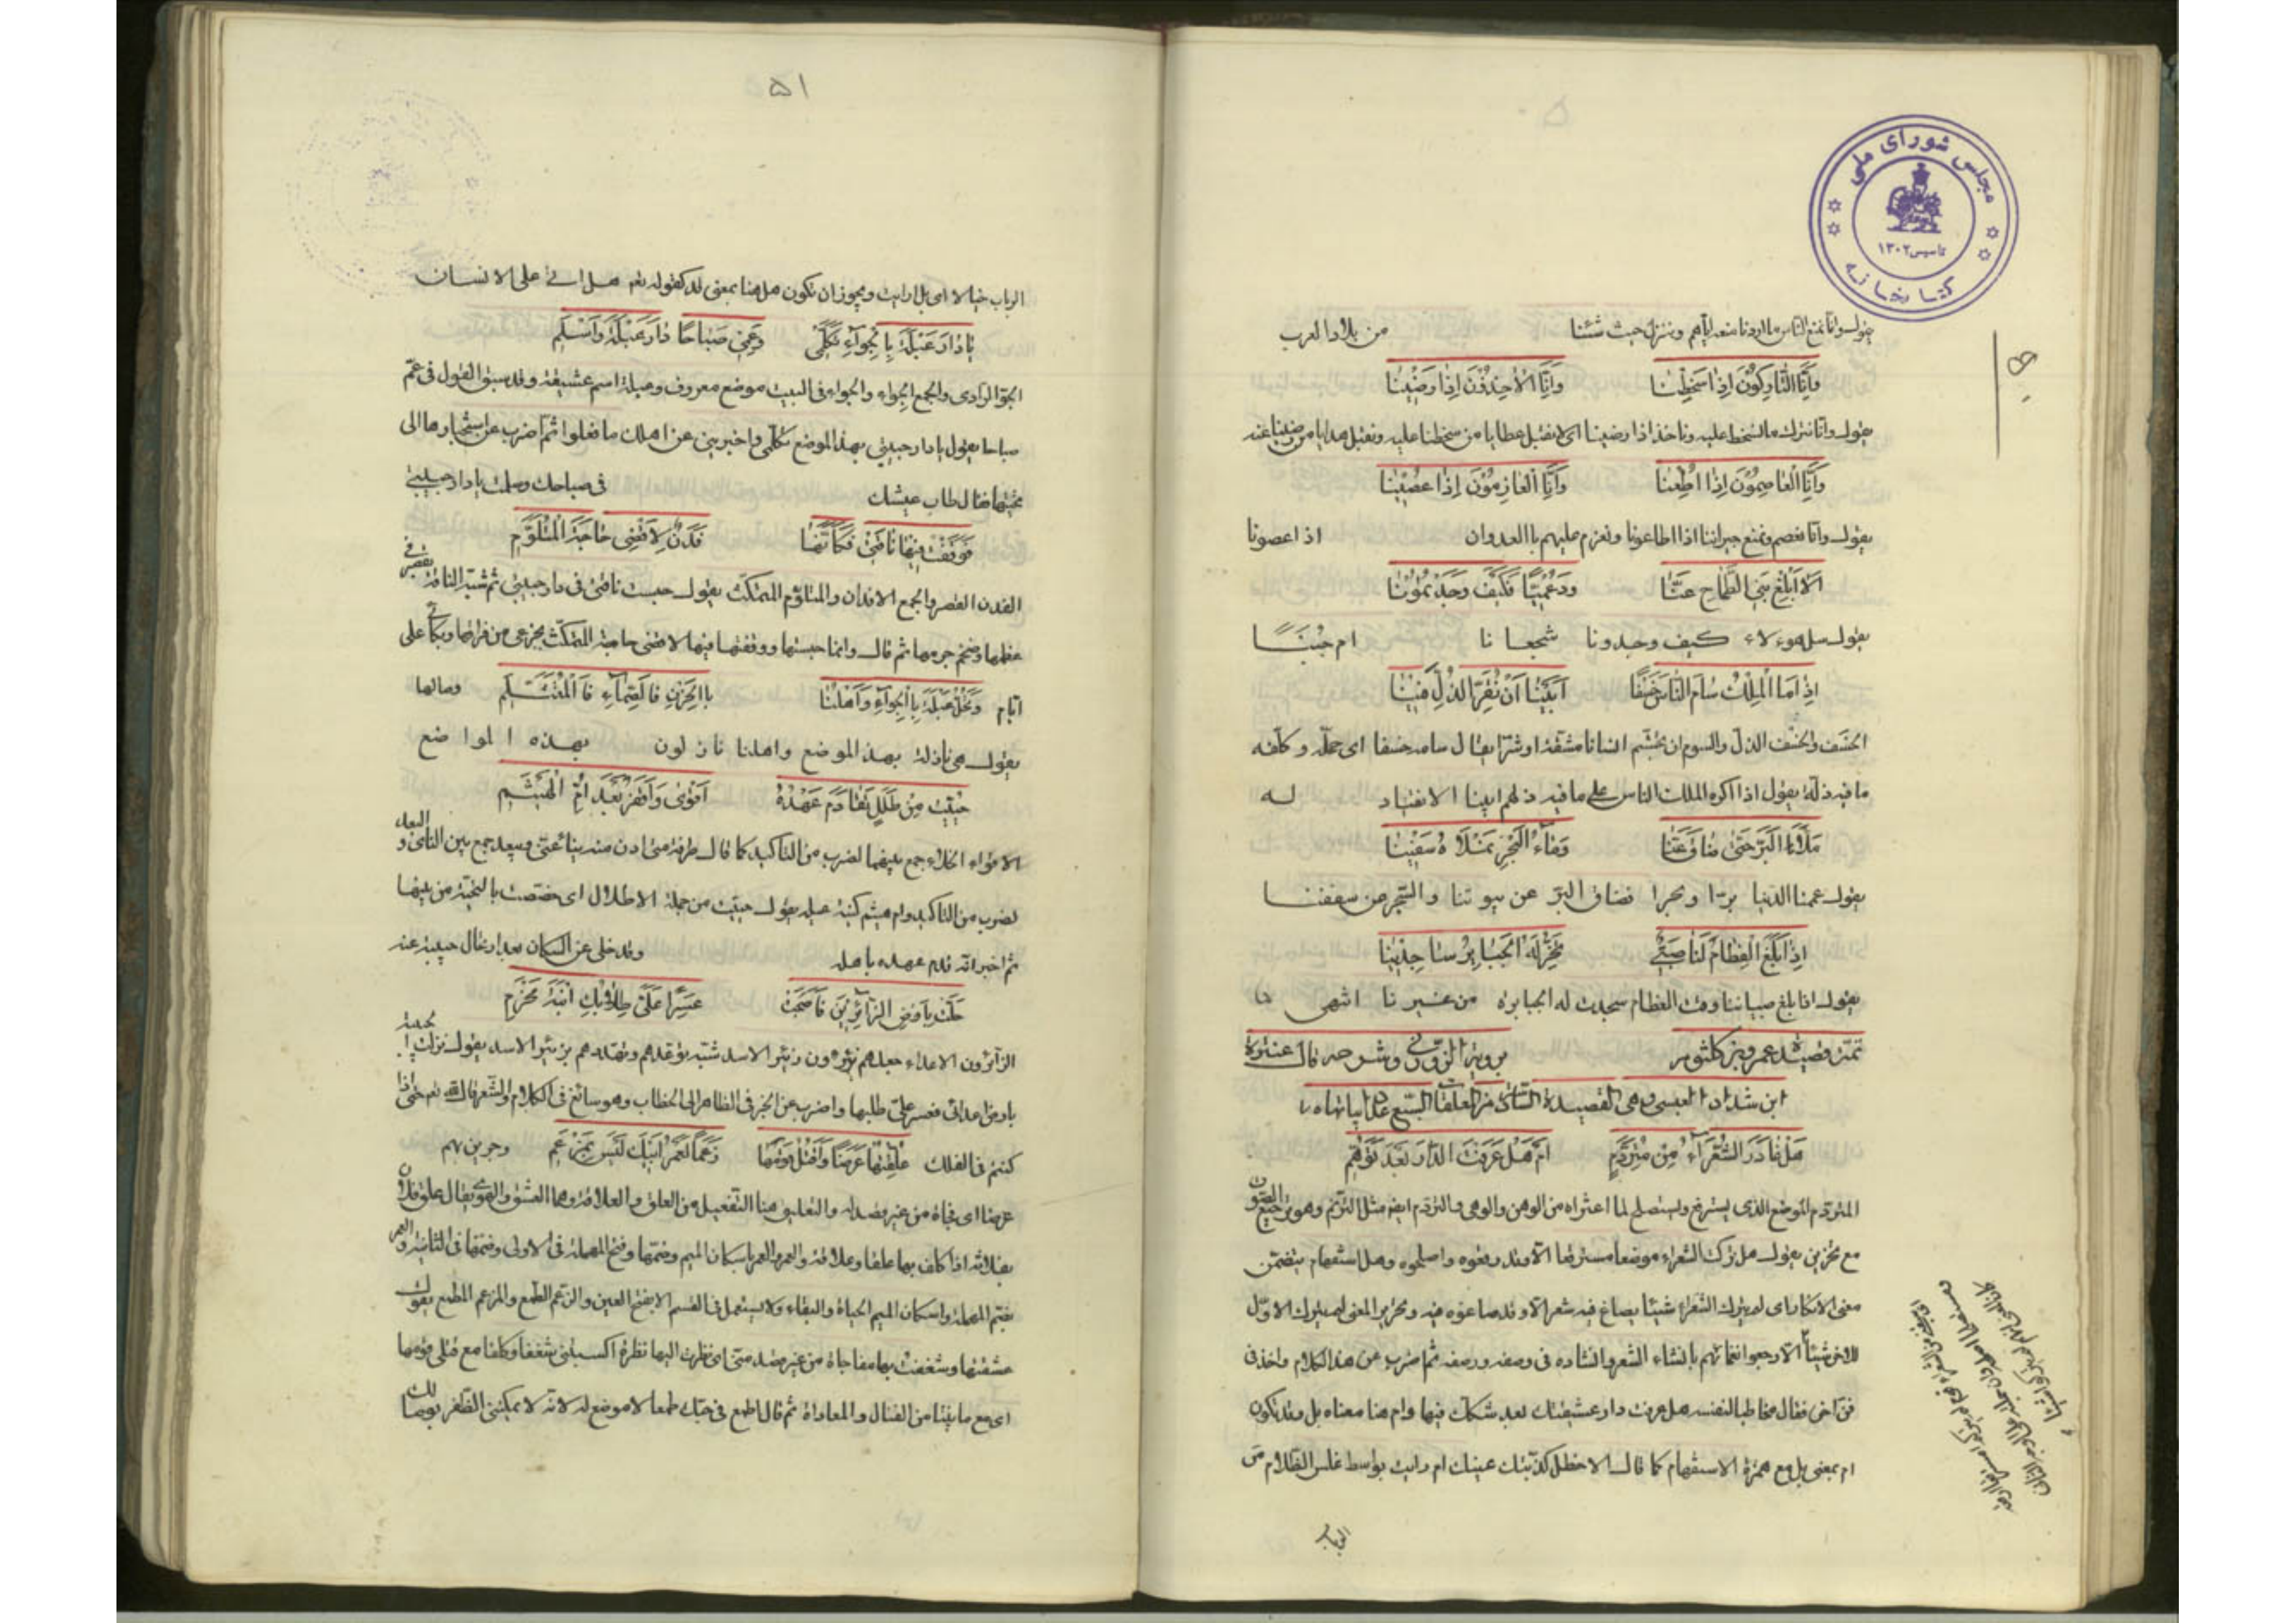 مجلس شورای ملی
تاسیس ۱۳۰۲
کتابخانه
يقول وانا نمنع الناس ما اردنا منعه اياهم وننزل حيث شئنا من بلاد العرب
وَأَنَّا التَّارِكُونَ إِذَا سَخِطْنَا وَأَنَّا الْآخِذُونَ إِذَا رَضِينَا
يقول وانا نترك ما نسخط عليه وناخذ اذا رضينا اى لا نقبل عطايا من سخطنا عليه ونقبل هدايا من رضينا عنه
وَأَنَّا الْعَاصِمُونَ إِذَا أُطِعْنَا وَأَنَّا الْعَازِمُونَ إِذَا عُصِينَا
يقول وانا نعصم ونمنع جيراننا اذا اطاعونا ونعزم عليهم بالعدوان اذا عصونا
أَلَا أَبْلِغْ بَنِي الطَّمَّاحِ عَنَّا وَدُعْمِيًّا فَكَيْفَ وَجَدْتُمُونَا
يقول سل هوءلاء كيف وجدونا شجعانا ام جبنا
إِذَا مَا الْمَلْكُ سَامَ النَّاسَ خَسْفًا أَبَيْنَا أَنْ نُقِرَّ الذُّلَّ فِينَا
الخسف والخسف الذل والسوم ان تجشم انسانا مشقة او شرا يقال سامه خسفا اى حمله وكلفه
ما فيه ذله يقول اذا اكره الملك الناس على ما فيه ذلهم ابينا الانقياد له
مَلَأْنَا الْبَرَّ حَتَّى ضَاقَ عَنَّا وَمَاءَ الْبَحْرِ نَمْلَأُهُ سَفِينَا
يقول عممنا الدنيا برا وبحرا فضاق البر عن بيوتنا والبحر عن سفننا
إِذَا بَلَغَ الْفِطَامَ لَنَا صَبِيٌّ تَخِرُّ لَهُ الْجَبَابِرُ سَاجِدِينَا
يقول اذا بلغ صبياننا وقت الفطام سجدت له الجبابرة من غيرنا انتهى
تمت قصيدة عمرو بن كلثوم بروية الزوزنى وشرحه قال عنترة
ابن شداد العبسى وهى القصيدة السادسة من المعلقات السبع
هَلْ غَادَرَ الشُّعَرَاءُ مِنْ مُتَرَدَّمِ أَمْ هَلْ عَرَفْتَ الدَّارَ بَعْدَ تَوَهُّمِ
المتردم الموضع الذى يسترقع ويستصلح لما اعتراه من الوهن والوهى والتردم ايضا مثل الترنم وهو ترجيع الصوت
مع تحزين يقول هل تركت الشعراء موضعا مسترقعا الا وقد رقعوه واصلحوه وهل استفهام يتضمن
معنى الانكار اى لم يترك الشعراء شيئا يصاغ فيه شعر الا وقد صاغوه فيه وتحرير المعنى لم يترك الاول
للاخر شيئا الا رجعوا نغماتهم بانشاء الشعر وانشاده فى وصفه ورصفه ثم اضرب عن هذا الكلام واخذ فى
فن اخر فقال مخاطبا لنفسه هل عرفت دار عشيقتك بعد شكك فيها وام هنا معناه بل وقد تكون
ام بمعنى بل مع همزة الاستفهام كما قال الاخطل كذبتك عينك ام رايت بواسط غلس الظلام من
الرباب
۵۱
الرباب خيالا اى بل ارايت ويجوز ان تكون هل هنا بمعنى قد كقوله تعم هل اتى على الانسان
يَا دَارَ عَبْلَةَ بِالْجِوَاءِ تَكَلَّمِي وَعِمِي صَبَاحًا دَارَ عَبْلَةَ وَاسْلَمِ
الجو الوادى والجمع الجواء والجواء فى البيت موضع معروف وعبلة اسم عشيقته وقد سبق القول فى عم
صباحا يقول يا دار حبيبتى بهذا الموضع تكلمى واخبرينى عن اهلك ما فعلوا ثم اضرب عن استخبارها الى
تحيتها فقال طاب عيشك فى صباحك وسلمت يا دار حبيبتى
فَوَقَفْتُ فِيهَا نَاقَتِي فَكَأَنَّهَا فَدَنٌ لِأَقْضِيَ حَاجَةَ الْمُتَلَوِّمِ
الفدن القصر والجمع الافدان والمتلوم المتمكث يقول حبست ناقتى فى دار حبيبتى ثم شبه الناقة بقصر فى
عظمها وضخم جرمها ثم قال وانما حبستها ووقفتها فيها لاقضى حاجة المتمكث بجزعى من فراقها وبكائى على
ايام وَتَحُلُّ عَبْلَةُ بِالْجِوَاءِ وَأَهْلُنَا بِالْحَزْنِ فَالصَّمَّاءِ فَالْمُتَثَلَّمِ وصالها
يقول هى نازلة بهذا الموضع واهلنا نازلون بهذه المواضع
حُيِّيتَ مِنْ طَلَلٍ تَقَادَمَ عَهْدُهُ أَقْوَى وَأَقْفَرَ بَعْدَ أُمِّ الْهَيْثَمِ
الاقواء الخلاء جمع بينهما لضرب من التاكيد كما قال طرفة متى ادن منه ينأ عنى ويبعد جمع بين النأى والبعد
لضرب من التاكيد وام هيثم كنية عبله يقول حييت من جملة الاطلال اى خصصت بالتحية من بينها
ثم اخبر انه قدم عهده باهله وقد خلى عن السكان بعد ارتحال حبيبته عنه
حَلَّتْ بِأَرْضِ الزَّائِرِينَ فَأَصْبَحَتْ عَسِرًا عَلَيَّ طِلَابُكِ ابْنَةَ مَخْرَمِ
الزائرون الاعداء جعلهم يزئرون زئير الاسد شبه توعدهم وتهددهم بزئير الاسد يقول نزلت الحبيبة
بارض اعدائى فعسر على طلبها واضرب عن الخبر فى الظاهر الى الخطاب وهو سائغ فى الكلام والشعر قال الله تعم حتى اذا
كنتم فى الفلك عُلِّقْتُهَا عَرَضًا وَأَقْتُلُ قَوْمَهَا زَعْمًا لَعَمْرُ أَبِيكَ لَيْسَ بِمَزْعَمِ وجرين بهم
عرضا اى فجاة من غير قصد له والتعليق هنا التفعيل من العلق والعلاقة وهما العشق والهوى يقال علق فلان
بفلانة اذا كلف بها علقا وعلاقة والعمر والعمر باسكان الميم وضمها وفتح المهملة فى الاولى وضمها فى الثانية والعمر
بفتح المهملة واسكان الميم الحياة والبقاء ولا يستعمل فى القسم الا بفتح العين والزعم الطمع والمزعم المطمع يقول
عشقتها وشغفت بها مفاجاة من غير قصد منى اى نظرت اليها نظرة اكسبتنى شغفا وكلفا مع قتلى قومها
اى مع ما بيننا من القتال والمعاداة ثم قال اطمع فى حبك طمعا لا موضع له لانه لا يمكننى الظفر بوصالك